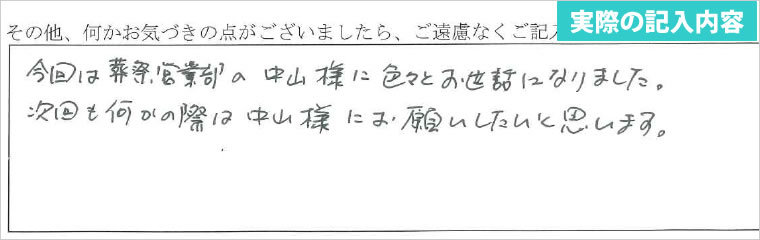 その他、何かお気づきの点がございましたら、ご遠慮なくご記入
実際の記入内容
今回は葬祭営業部の中山様に色々とお世話になりました。
次回も何かの際は中山様にお願いしたいと思います。